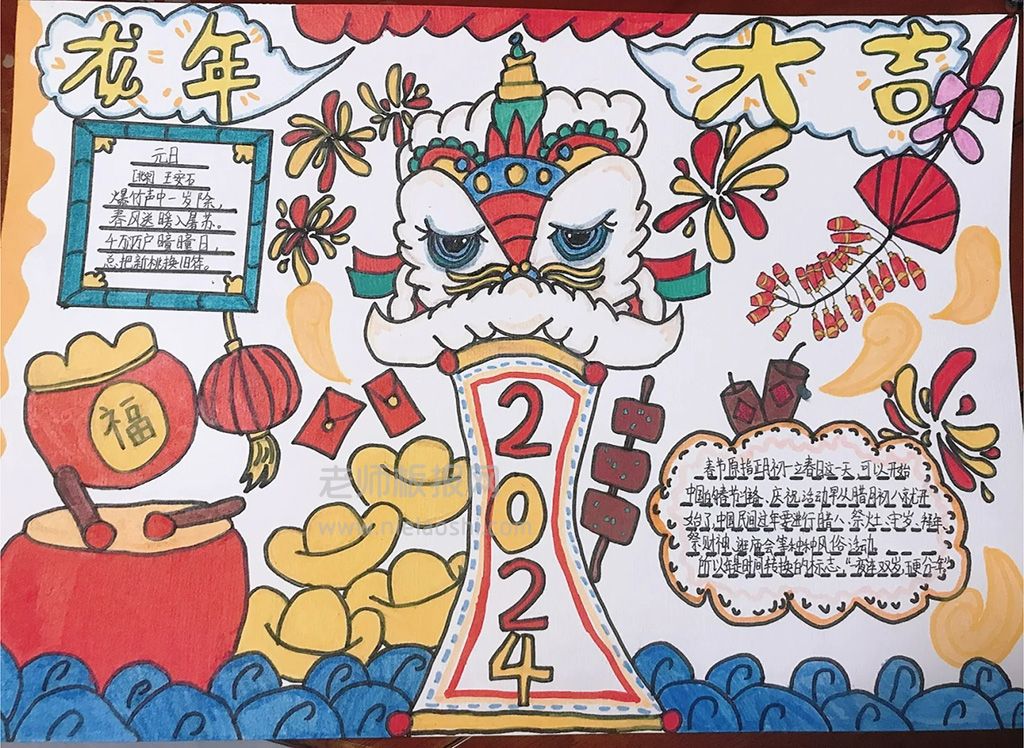 龙年
大吉
元日
王安石
爆竹声中一岁除，
春风送暖入屠苏。
千万户曈曈日，
总把新桃换旧符。
福
2024
老师板报网
春节原指正月初一立春日这一天，可以开始
中国的春节，庆祝活动早从腊月初八就开
始了，中国民间过年要进行腊八、祭灶、守岁、拜年、
祭财神、逛庙会等种种风俗活动
所以年是时间转换的标志，"夜连双岁，五更分年"